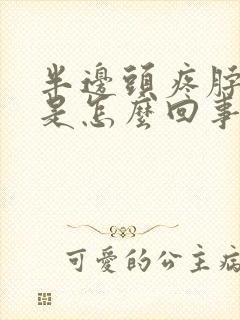 半邊頭疼脖
是怎麼回事
可愛的公主病